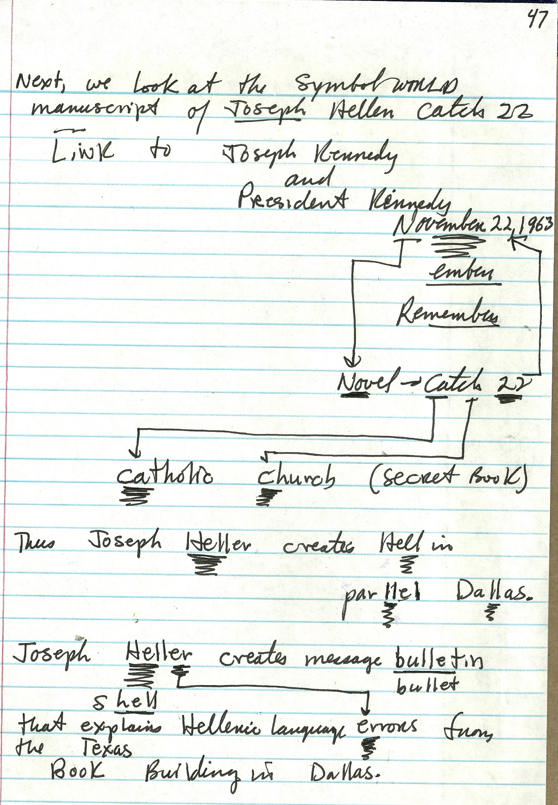 47
Next, we look at the Symbol WORLD
manuscript of Joseph Hellen Catch 22
Link to Joseph Kennedy
and
President Kennedy
November 22, 1963
ember
Remember
Novel → Catch 22
catholic church (secret Book)
Thus Joseph Heller creates Hell in
parllel Dallas.
Joseph Heller creates message bulletin
bullet
shell
that explains Hellenic language errors from
the Texas
Book Building in Dallas.